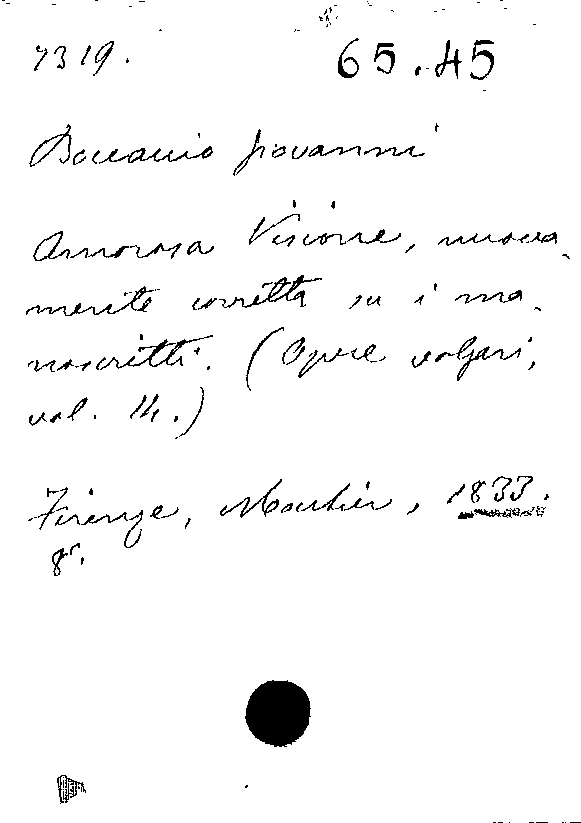 7319. 65.45
Boccaccio Giovanni
Amorosa Visione, nuova-
mente corretta su i ma-
noscritti. (Opere volgari,
vol. 14.)
Firenze, Moutier, 1833.
8º.